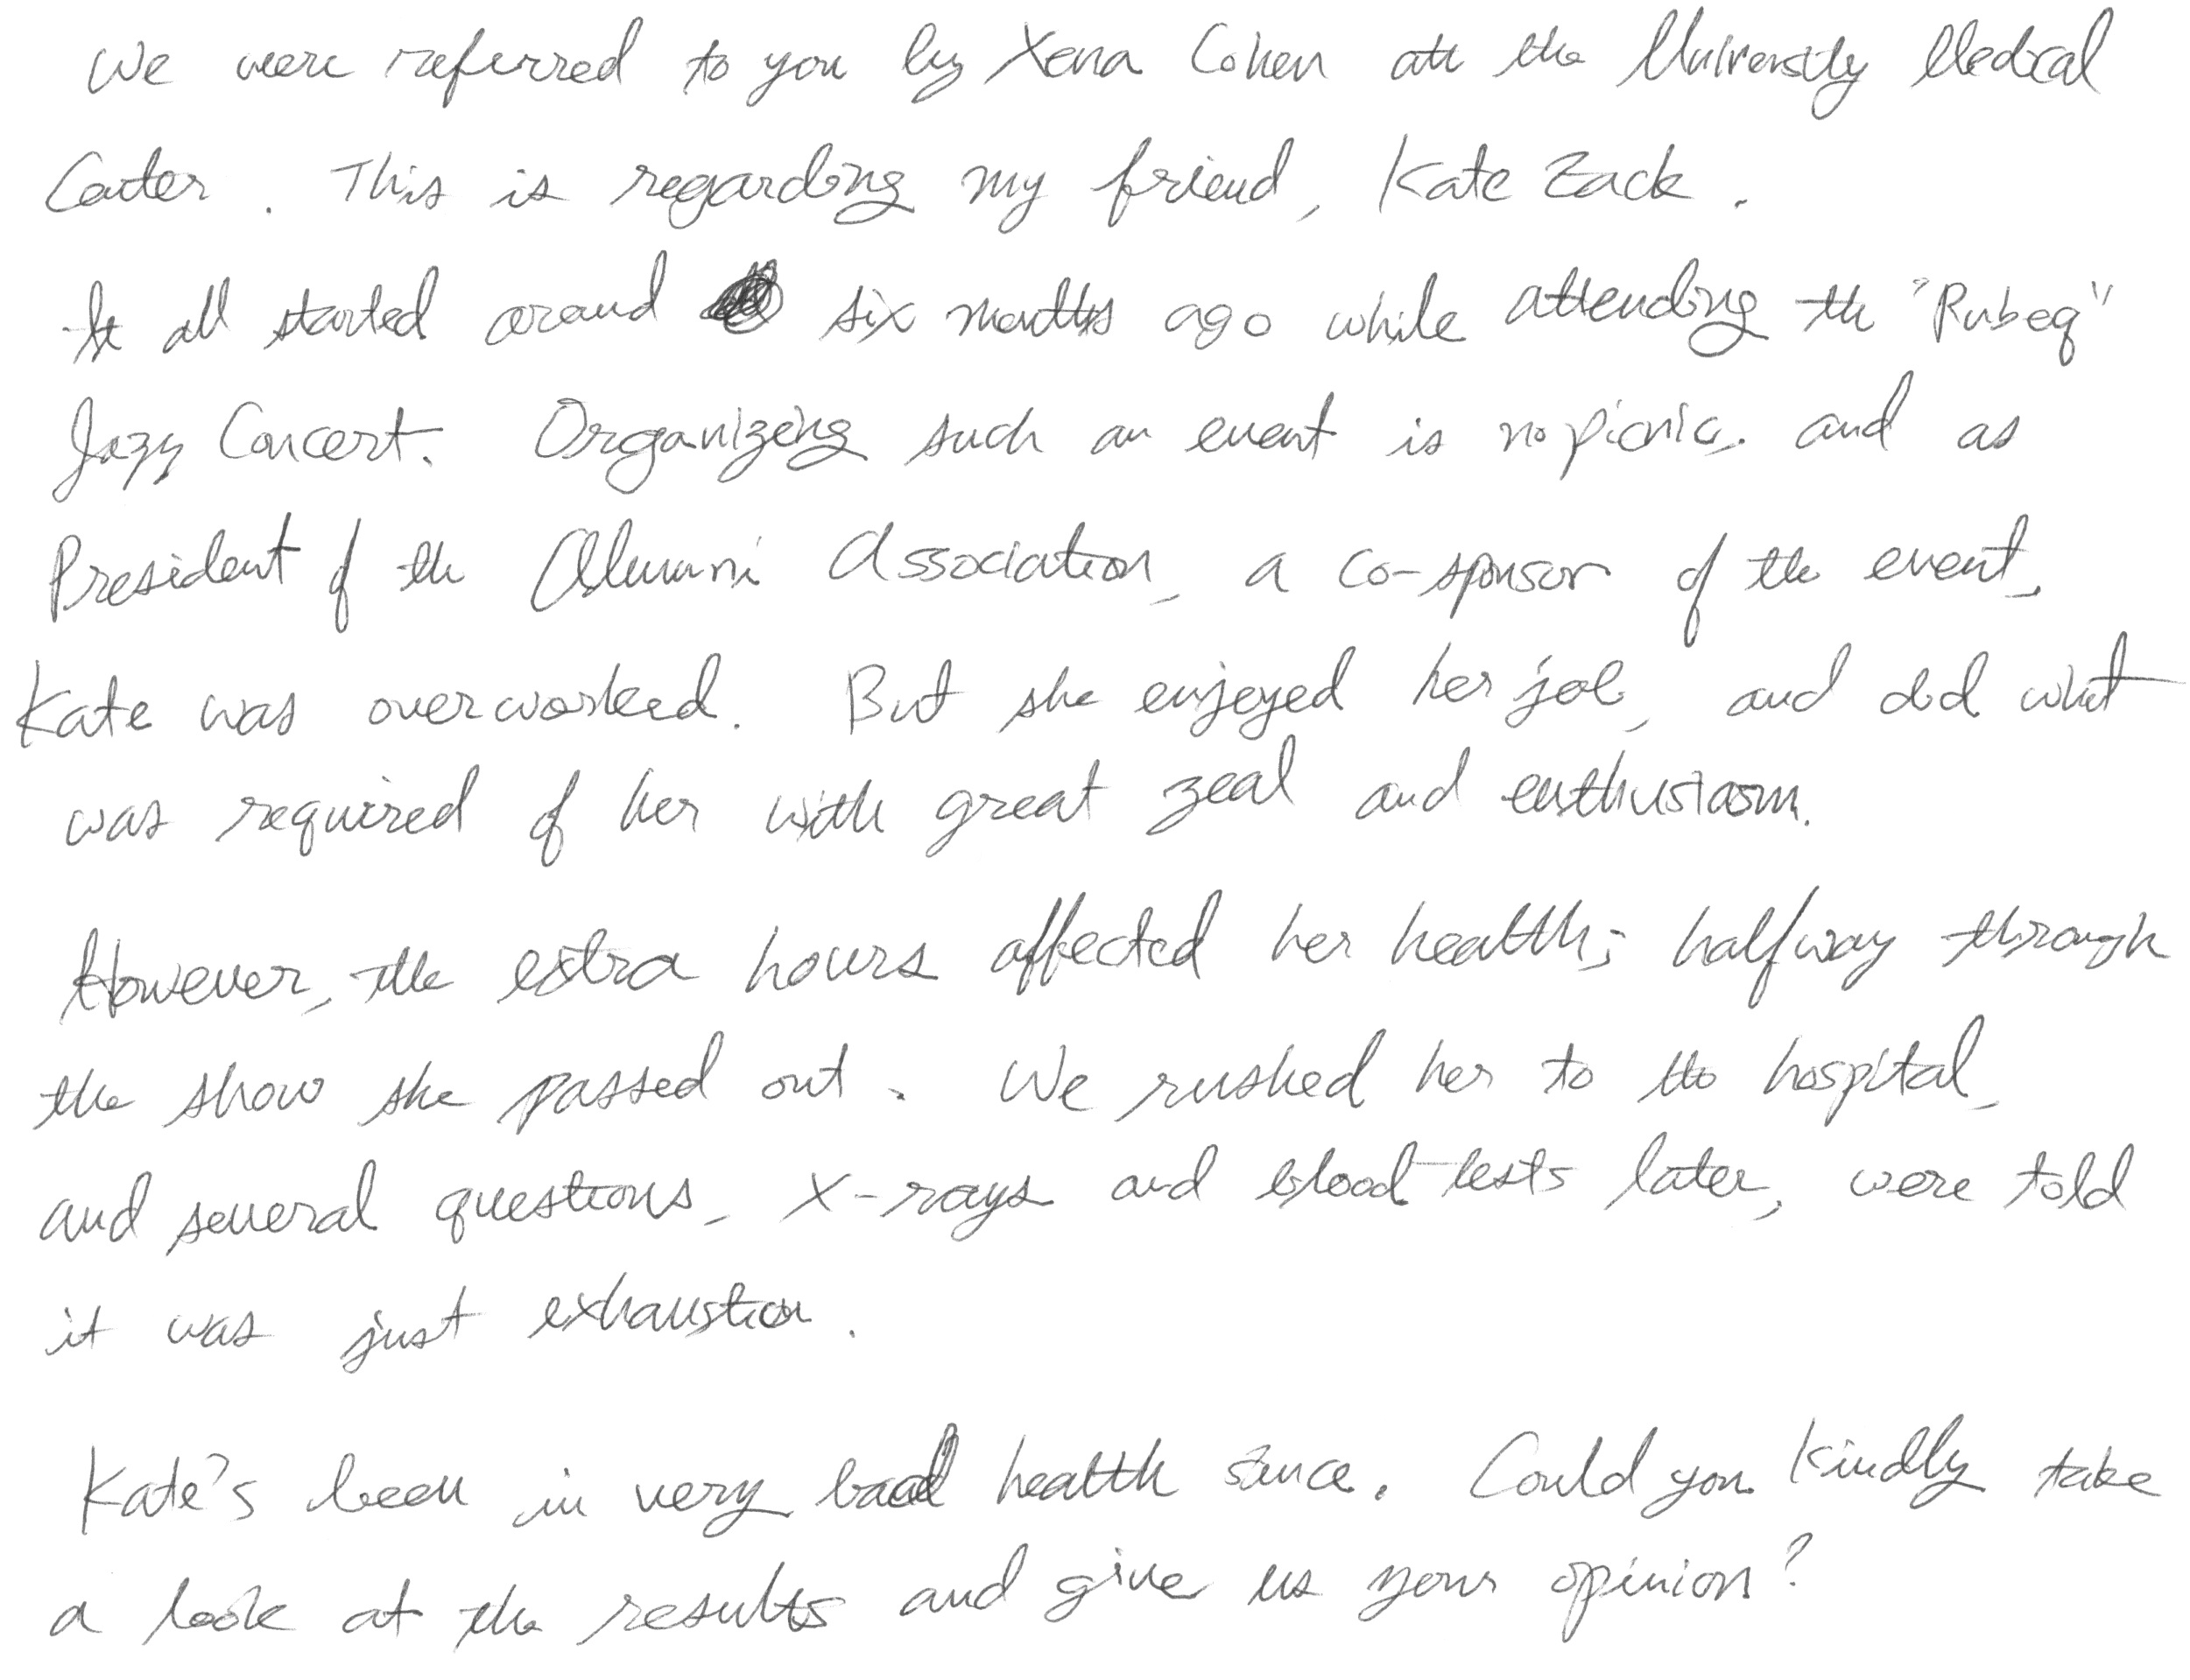 We were referred to you by Xena Cohen at the University Medical
Center. This is regarding my friend, Kate Zack.
It all started around six months ago while attending the "Rubeq"
Jazz Concert. Organizing such an event is no picnic, and as
President of the Alumni Association, a co-sponsor of the event,
Kate was overworked. But she enjoyed her job, and did what
was required of her with great zeal and enthusiasm.
However, the extra hours affected her health; halfway through
the show she passed out. We rushed her to the hospital,
and several questions, x-rays and blood tests later, were told
it was just exhaustion.
Kate's been in very bad health since. Could you kindly take
a look at the results and give us your opinion?